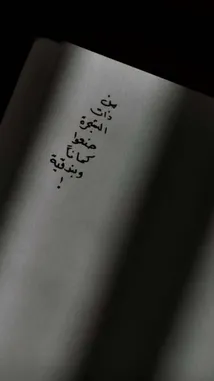 من
ذات
الشجرة
صنعوا
كماناً
وبندقية
!